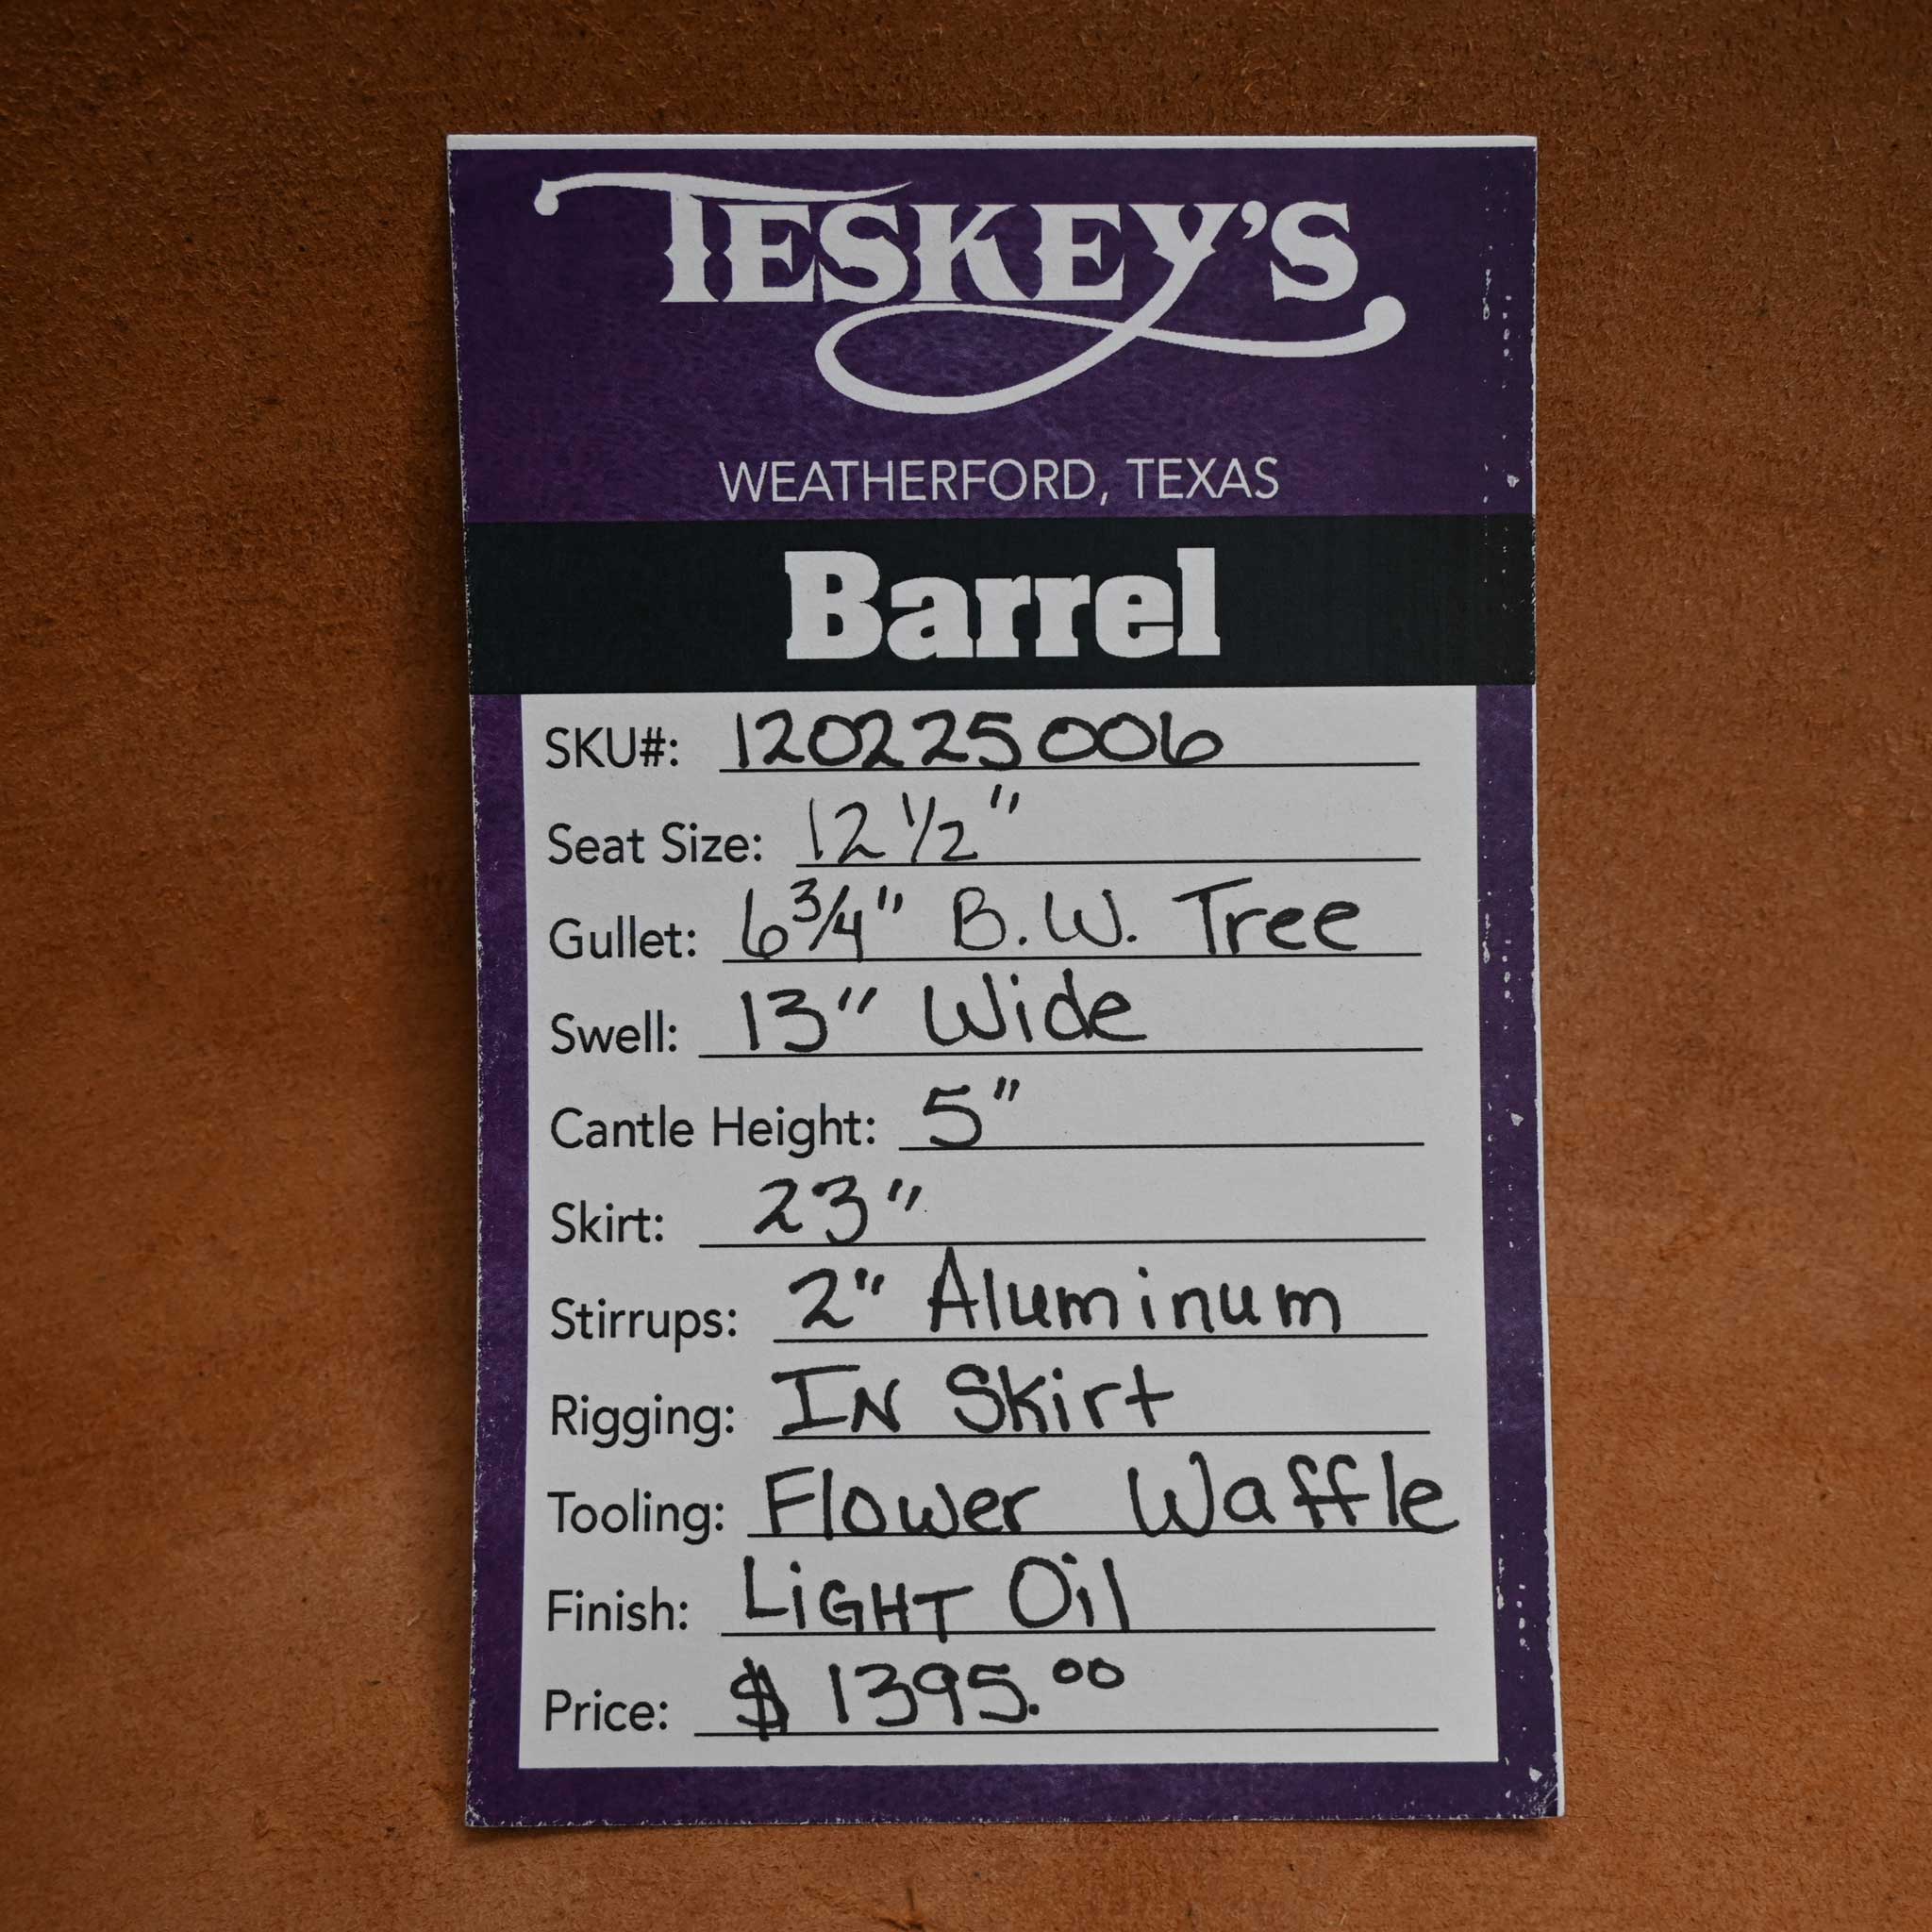 TESKEY'S
WEATHERFORD, TEXAS
Barrel
SKU#: 120225006
Seat Size: 12 1/2"
Gullet: 6 3/4" B.W. Tree
Swell: 13" Wide
Cantle Height: 5"
Skirt: 23"
Stirrups: 2" Aluminum
Rigging: IN Skirt
Tooling: Flower Waffle
Finish: LiGHT Oil
Price: $ 1395.00